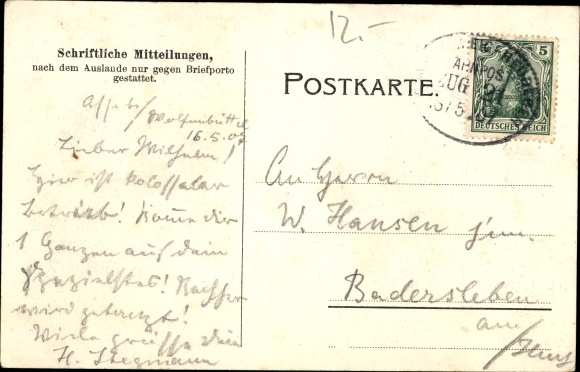 12.-
Schriftliche Mitteilungen,
nach dem Auslande nur gegen Briefporto
gestattet.
POSTKARTE.
5
DEUTSCHES REICH
BAHNPOST
ZUG
Wolfenbüttel
16.5.07
Lieber Wilhelm!
Hier ist kolossaler
Betrieb! Komme dir
1 Ganzen auf dein
Spezielstes! Nachher
wird getanzt!
Viele Grüsse dein
H. Stegmann
An Herrn
W. Hansen jun.
Badersleben
am